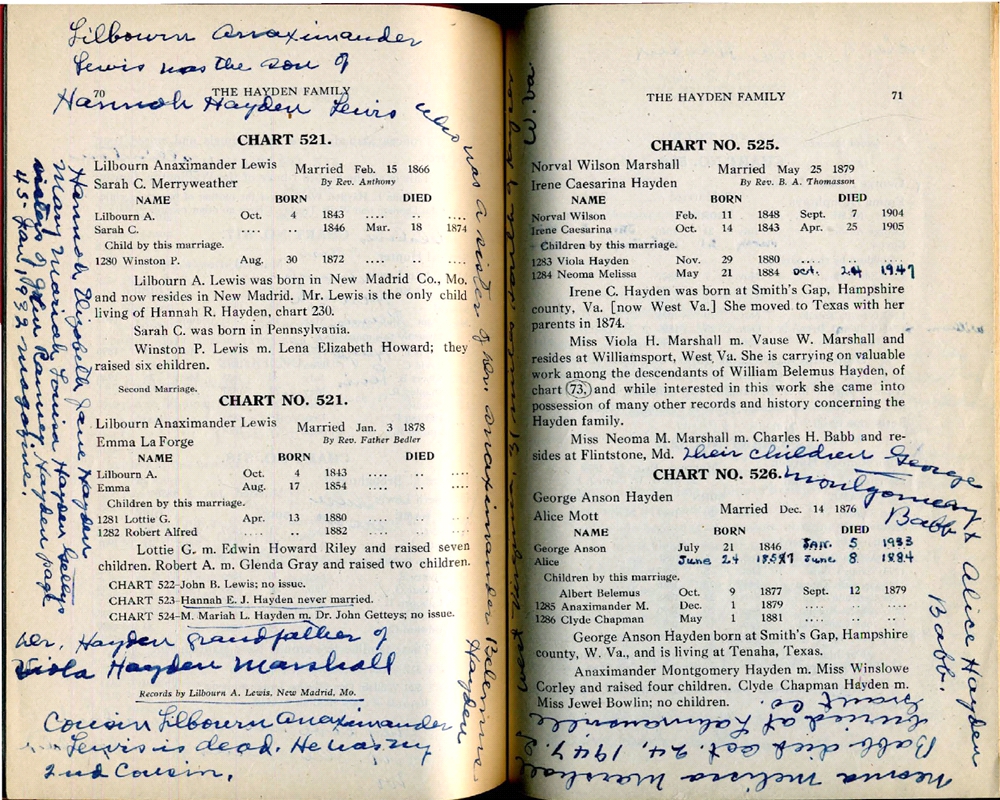 Lilbourn Anaximander
Lewis was the son of
70 THE HAYDEN FAMILY
Hannah Hayden Lewis who was a sister of Wm. Anaximander Belemus Hayden
CHART 521.
Lilbourn Anaximander Lewis Married Feb. 15 1866
Sarah C. Merryweather By Rev. Anthony
NAME BORN DIED
Lilbourn A. Oct. 4 1843 .... .. ....
Sarah C. .... .. 1846 Mar. 18 1874
Child by this marriage.
1280 Winston P. Aug. 30 1872 .... .. ....
Lilbourn A. Lewis was born in New Madrid Co., Mo.
and now resides in New Madrid. Mr. Lewis is the only child
living of Hannah R. Hayden, chart 230.
Sarah C. was born in Pennsylvania.
Winston P. Lewis m. Lena Elizabeth Howard; they
raised six children.
Second Marriage.
CHART NO. 521.
Lilbourn Anaximander Lewis Married Jan. 3 1878
Emma La Forge By Rev. Father Bedler
NAME BORN DIED
Lilbourn A. Oct. 4 1843 .... .. ....
Emma Aug. 17 1854 .... .. ....
Children by this marriage.
1281 Lottie G. Apr. 13 1880 .... .. ....
1282 Robert Alfred .... .. 1882 .... .. ....
Lottie G. m. Edwin Howard Riley and raised seven
children. Robert A. m. Glenda Gray and raised two children.
CHART 522-John B. Lewis; no issue.
CHART 523-Hannah E. J. Hayden never married.
CHART 524-M. Mariah L. Hayden m. Dr. John Getteys; no issue.
Wm. Hayden grandfather of
Viola Hayden Marshall
Records by Lilbourn A. Lewis, New Madrid, Mo.
Cousin Lilbourn Anaximander
Lewis is dead. He was my
2nd Cousin.
Hannah Elizabeth Jane Hayden
Mary Mariah Louisa Hayden Getteys
sisters of John Ramsey Hayden page
45- Jan, 1932 magazine.
W. Va.
THE HAYDEN FAMILY 71
CHART NO. 525.
Norval Wilson Marshall Married May 25 1879
Irene Caesarina Hayden By Rev. B. A. Thomasson
NAME BORN DIED
Norval Wilson Feb. 11 1848 Sept. 7 1904
Irene Caesarina Oct. 14 1843 Apr. 25 1905
Children by this marriage.
1283 Viola Hayden Nov. 29 1880 .... .. ....
1284 Neoma Melissa May 21 1884 Oct. 24 1947
Irene C. Hayden was born at Smith's Gap, Hampshire
county, Va. [now West Va.] She moved to Texas with her
parents in 1874.
Miss Viola H. Marshall m. Vause W. Marshall and
resides at Williamsport, West Va. She is carrying on valuable
work among the descendants of William Belemus Hayden, of
chart 73, and while interested in this work she came into
possession of many other records and history concerning the
Hayden family.
Miss Neoma M. Marshall m. Charles H. Babb and re-
sides at Flintstone, Md. Their children George
Montgomery Babb & Alice Hayden Babb.
CHART NO. 526.
George Anson Hayden
Alice Mott Married Dec. 14 1876
NAME BORN DIED
George Anson July 21 1846 Jan. 5 1933
Alice June 24 June 8 1884
Children by this marriage.
Albert Belemus Oct. 9 1877 Sept. 12 1879
1285 Anaximander M. Dec. 1 1879 .... .. ....
1286 Clyde Chapman May 1 1881 .... .. ....
George Anson Hayden born at Smith's Gap, Hampshire
county, W. Va., and is living at Tenaha, Texas.
Anaximander Montgomery Hayden m. Miss Winslowe
Corley and raised four children. Clyde Chapman Hayden m.
Miss Jewel Bowlin; no children.
Neoma Melissa Marshall
Babb died Oct. 24, 1947
buried at Lahmansville
Grant Co.